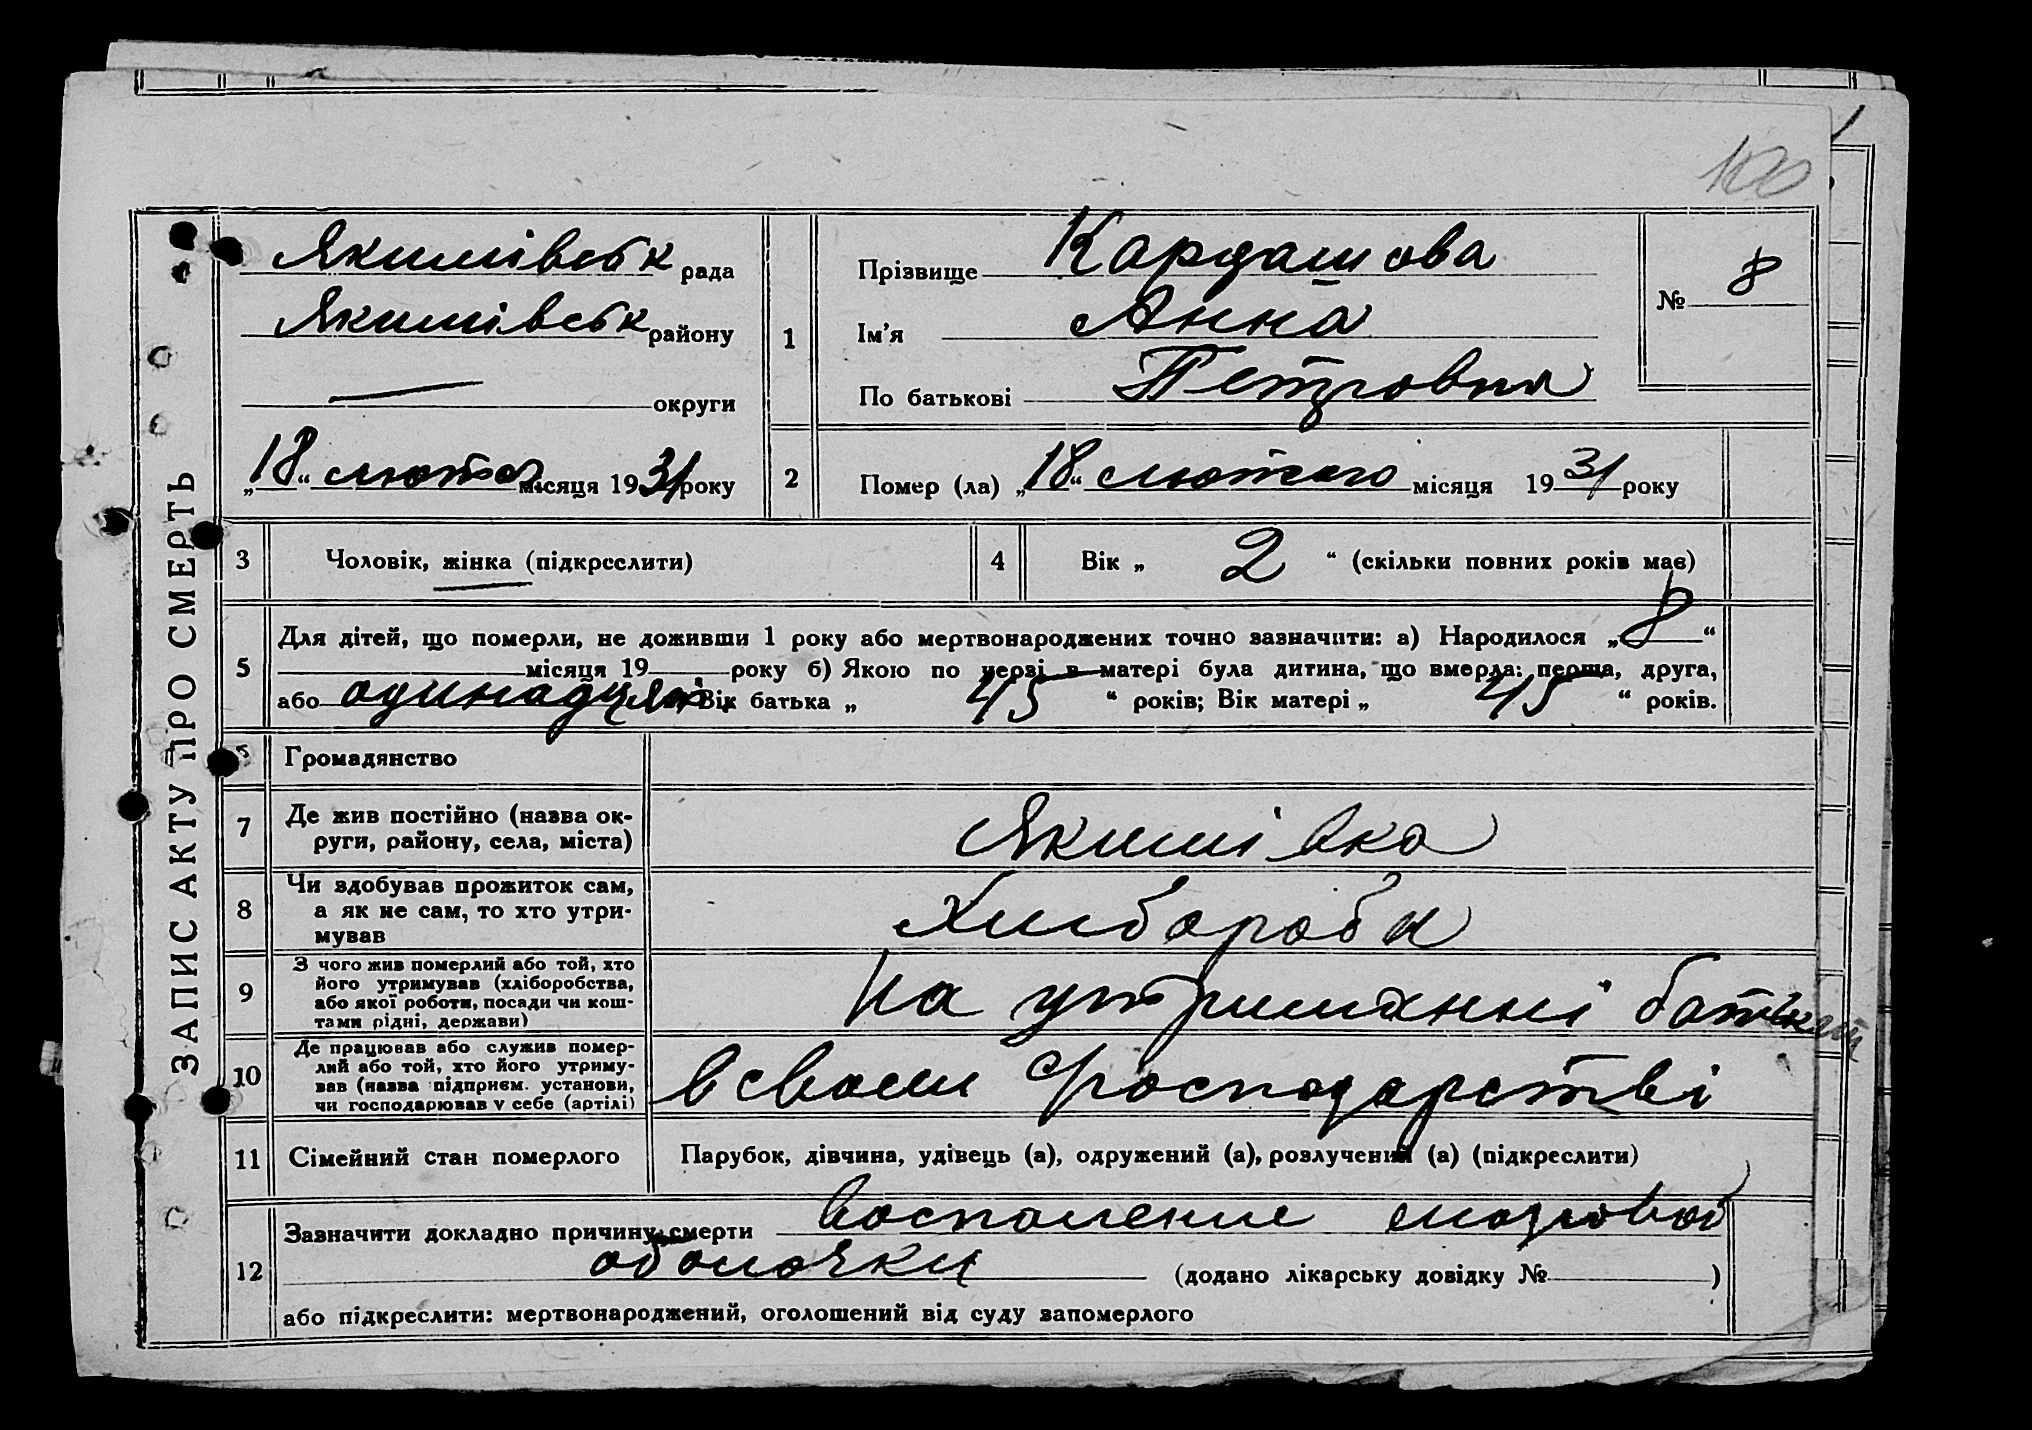 100
ЗАПИС АКТУ ПРО СМЕРТЬ
Якимівськ рада
Якимівськ району
— округи
„18“ люто місяця 1931 року
1
Прізвище Кардашова
Ім’я Анна
По батькові Петровна
№ 8
2
Помер (ла) „18“ лютого місяця 1931 року
3
Чоловік, жінка (підкреслити)
4
Вік „ 2 “ (скільки повних років має)
5
Для дітей, що померли, не доживши 1 року або мертвонароджених точно зазначити: а) Народилося „8“
місяця 19 року б) Якою по черзі в матері була дитина, що вмерла: перша, друга,
або одинадцять Вік батька „ 45 “ років; Вік матері „ 45 “ років.
6
Громадянство
7
Де жив постійно (назва ок-
руги, району, села, міста)
Якимівка
8
Чи здобував прожиток сам,
а як не сам, то хто утри-
мував
Хлібороби
9
З чого жив померлий або той, хто
його утримував (хліборобства,
або якої роботи, посади чи кош-
тами рідні, держави)
На утриманні батьків
10
Де працював або служив помер-
лий або той, хто його утриму-
вав (назва підприєм. установи,
чи господарював у себе (артілі)
в своем господарстві
11
Сімейний стан померлого
Парубок, дівчина, удівець (а), одружений (а), розлучений (а) (підкреслити)
12
Зазначити докладно причину смерти воспаление мозговой
оболочки (додано лікарську довідку № )
або підкреслити: мертвонароджений, оголошений від суду запомерлого